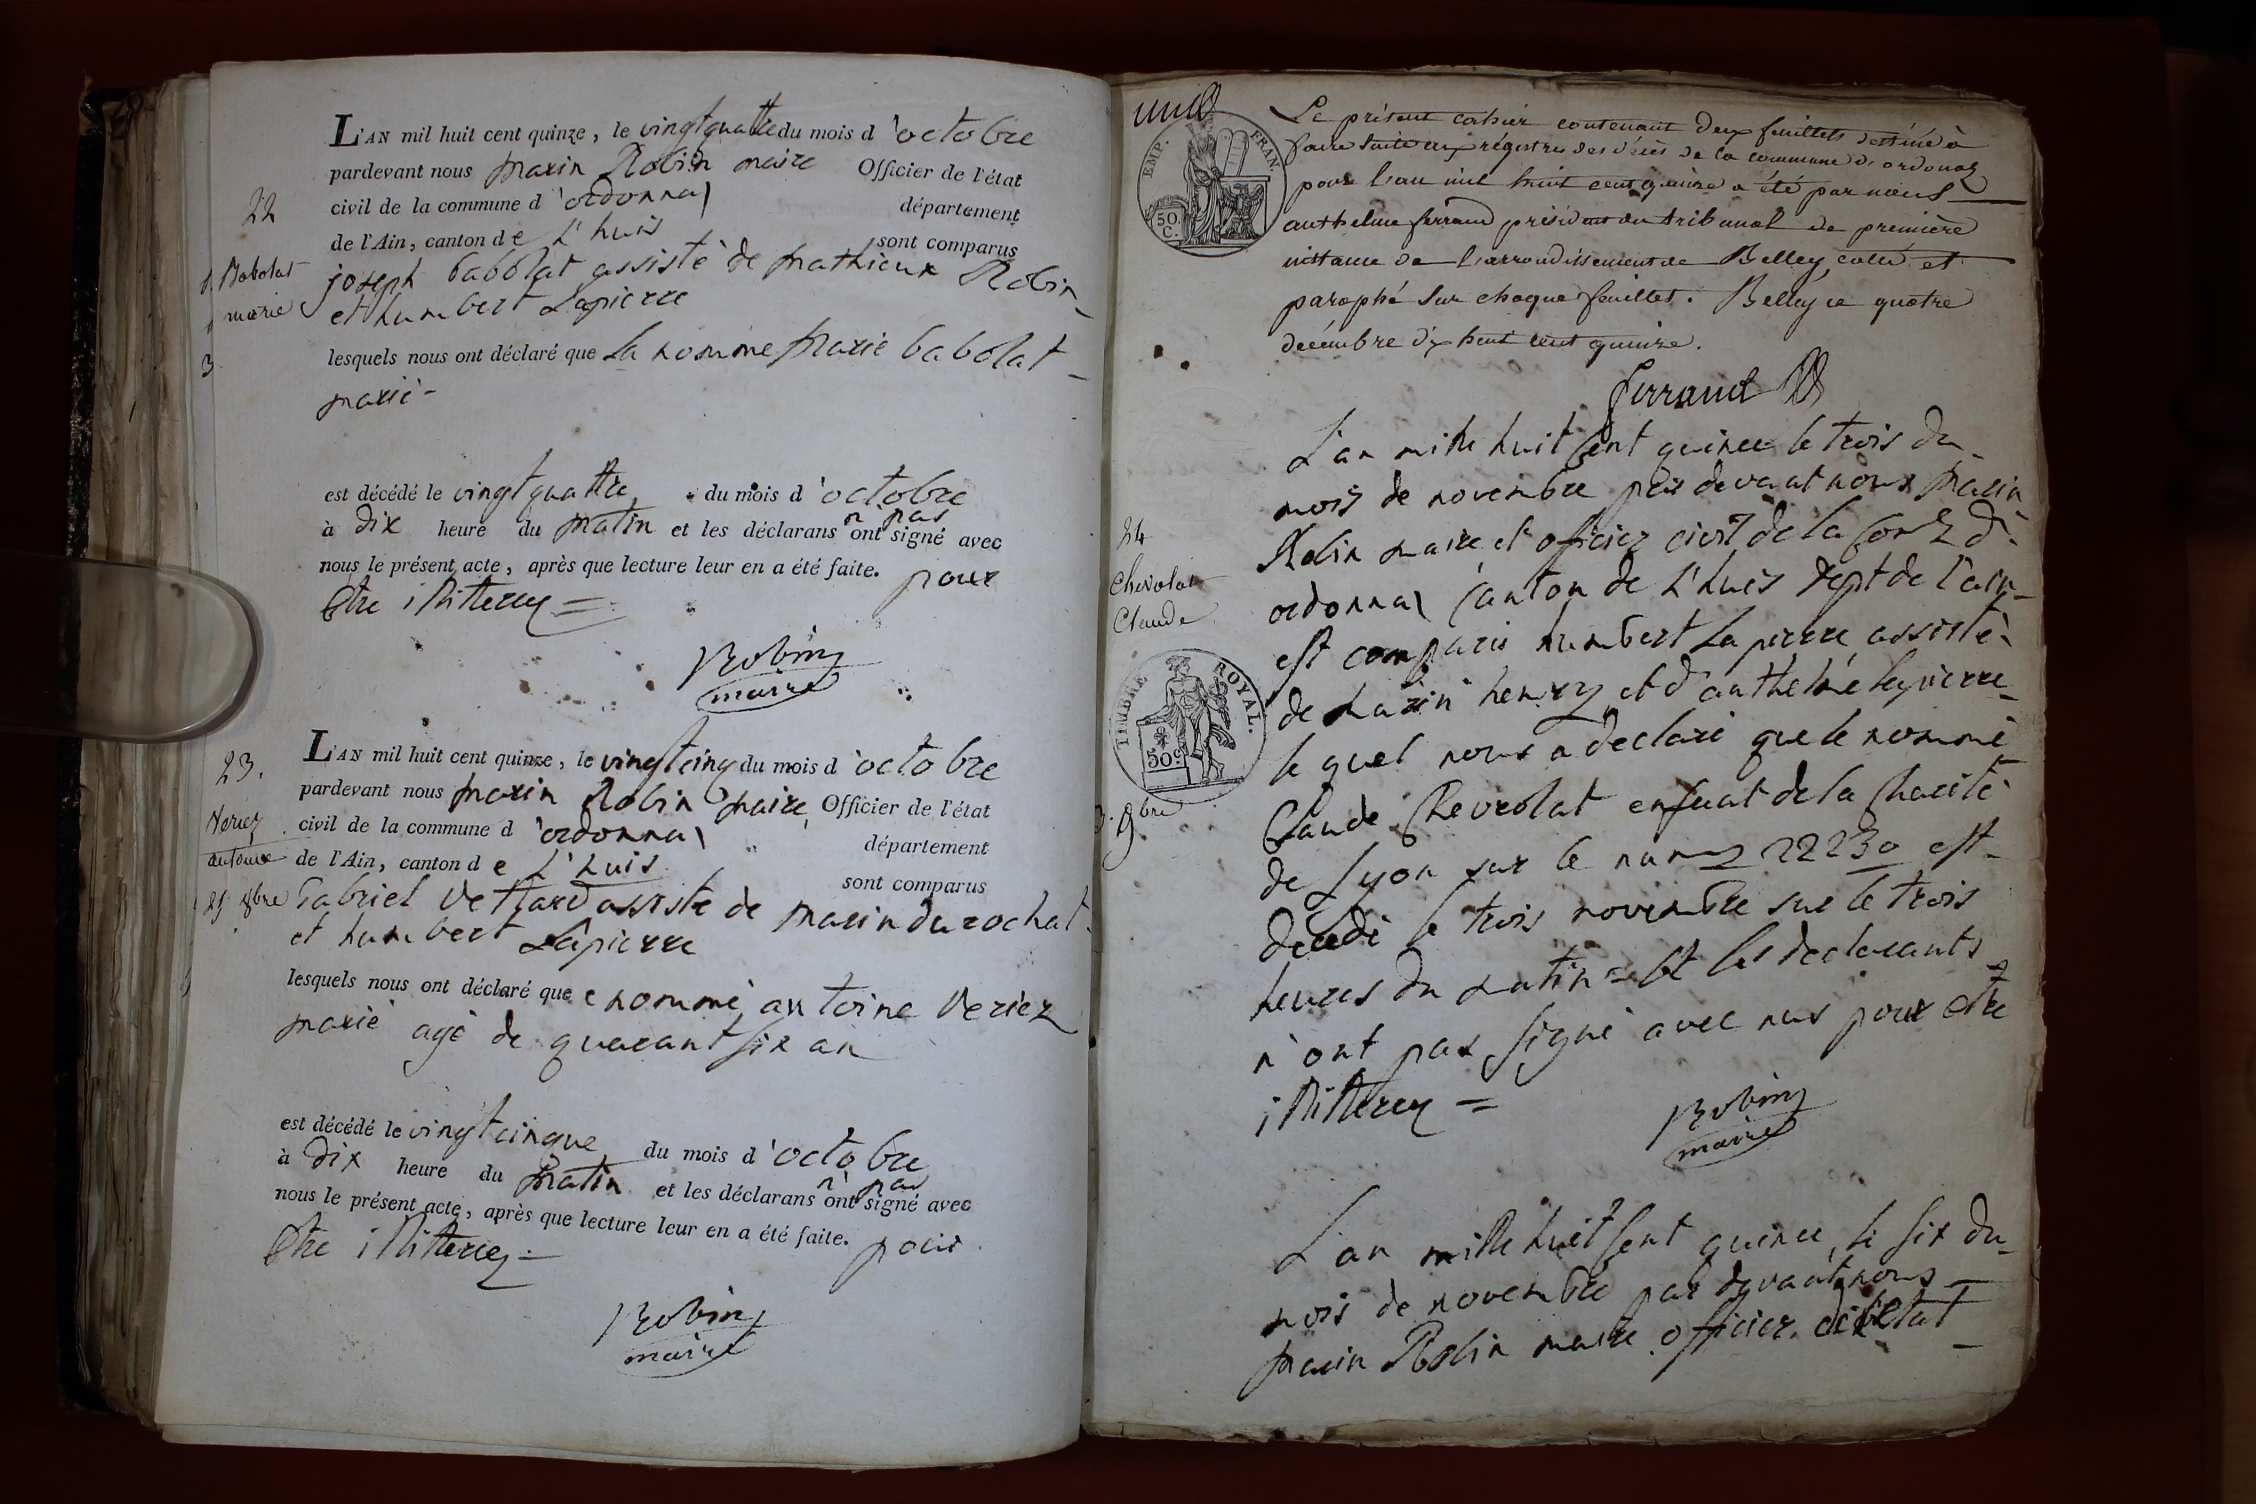 L'AN mil huit cent quinze, le vingtquattre du mois d'octobre
pardevant nous marin Robin maire Officier de l'état
civil de la commune d'ordonnaz département
de l'Ain, canton de L'huis sont comparus
joseph babolat assisté de mathieux Robin
et humbert Lapierre
lesquels nous ont déclaré que la nomme marie babolat
marié
est décédé le vingtquattre du mois d'octobre
à dix heure du matin et les déclarans n'ont pas signé avec
nous le présent acte, après que lecture leur en a été faite. pour
Etre illitterez =
Robin
maire
22
Babolat
marie
23.
Veriez
antoine
25 8bre
L'AN mil huit cent quinze, le vingtcinq du mois d'octobre
pardevant nous marin Robin maire Officier de l'état
civil de la commune d'ordonnaz département
de l'Ain, canton de L'huis sont comparus
Gabriel Vettard assisté de marin durochat
et humbert Lapierre
lesquels nous ont déclaré que le nommé antoine Veriez
marié agé de quarant six an
est décédé le vingtcinque du mois d'octobre
à dix heure du matin et les déclarans n'ont pas signé avec
nous le présent acte, après que lecture leur en a été faite. pour
Etre illitterez =
Robin
maire
EMP. FRAN.
50. C.
Le présent cahier contenant deux feuillets destiné à
faire suite aux régistres des décès de la commune d'ordonaz
pour l'an mil huit cent quinze a été par nous
anthelme ferrand président du tribunal de première
instance de l'arrondissement de Belley, cotté et
paraphé sur chaque feuillet. Belley ce quatre
décembre dix huit cent quinze.
ferrand
L'an mille huit sent quince le trois du
mois de novembre par devant nous marin
Robin maire et officier civil de la Com d'
ordonnaz Canton de L'huis Dept de l'ain
est comparu humbert Lapierre assisté
de marin henry et d'anthelme lapierre
le quel nous a declaré que le nommé
Claude Chevrolat enfant de la Charité
de Lyon sur le num 22230 est
decedé le trois novembre sur le trois
heures du matin = et les declarants
n'ont pas signé avec nus pour etre
illitterez =
Robin
maire
24
Chevolat
Claude
TIMBRE ROYAL.
50c
3. 9bre
L'an mille huit sent quince, le six du
mois de novembre par devant nous
marin Robin maire officier de l'etat